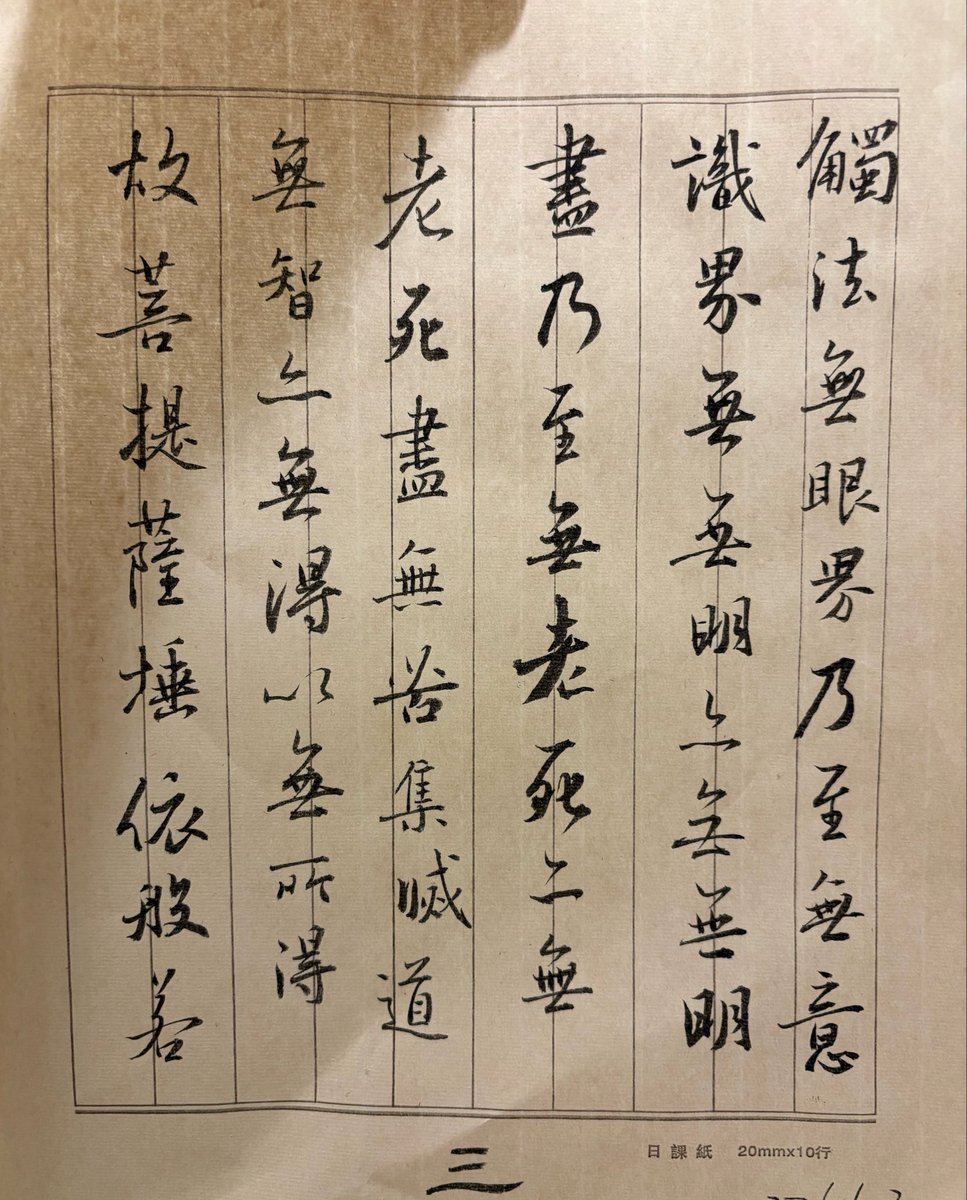 觸法無眼界乃至無意
識界無無明亦無無明
盡乃至無老死亦無
老死盡無苦集滅道
無智亦無得以無所得
故菩提薩埵依般若
三
日課紙 20mmx10行